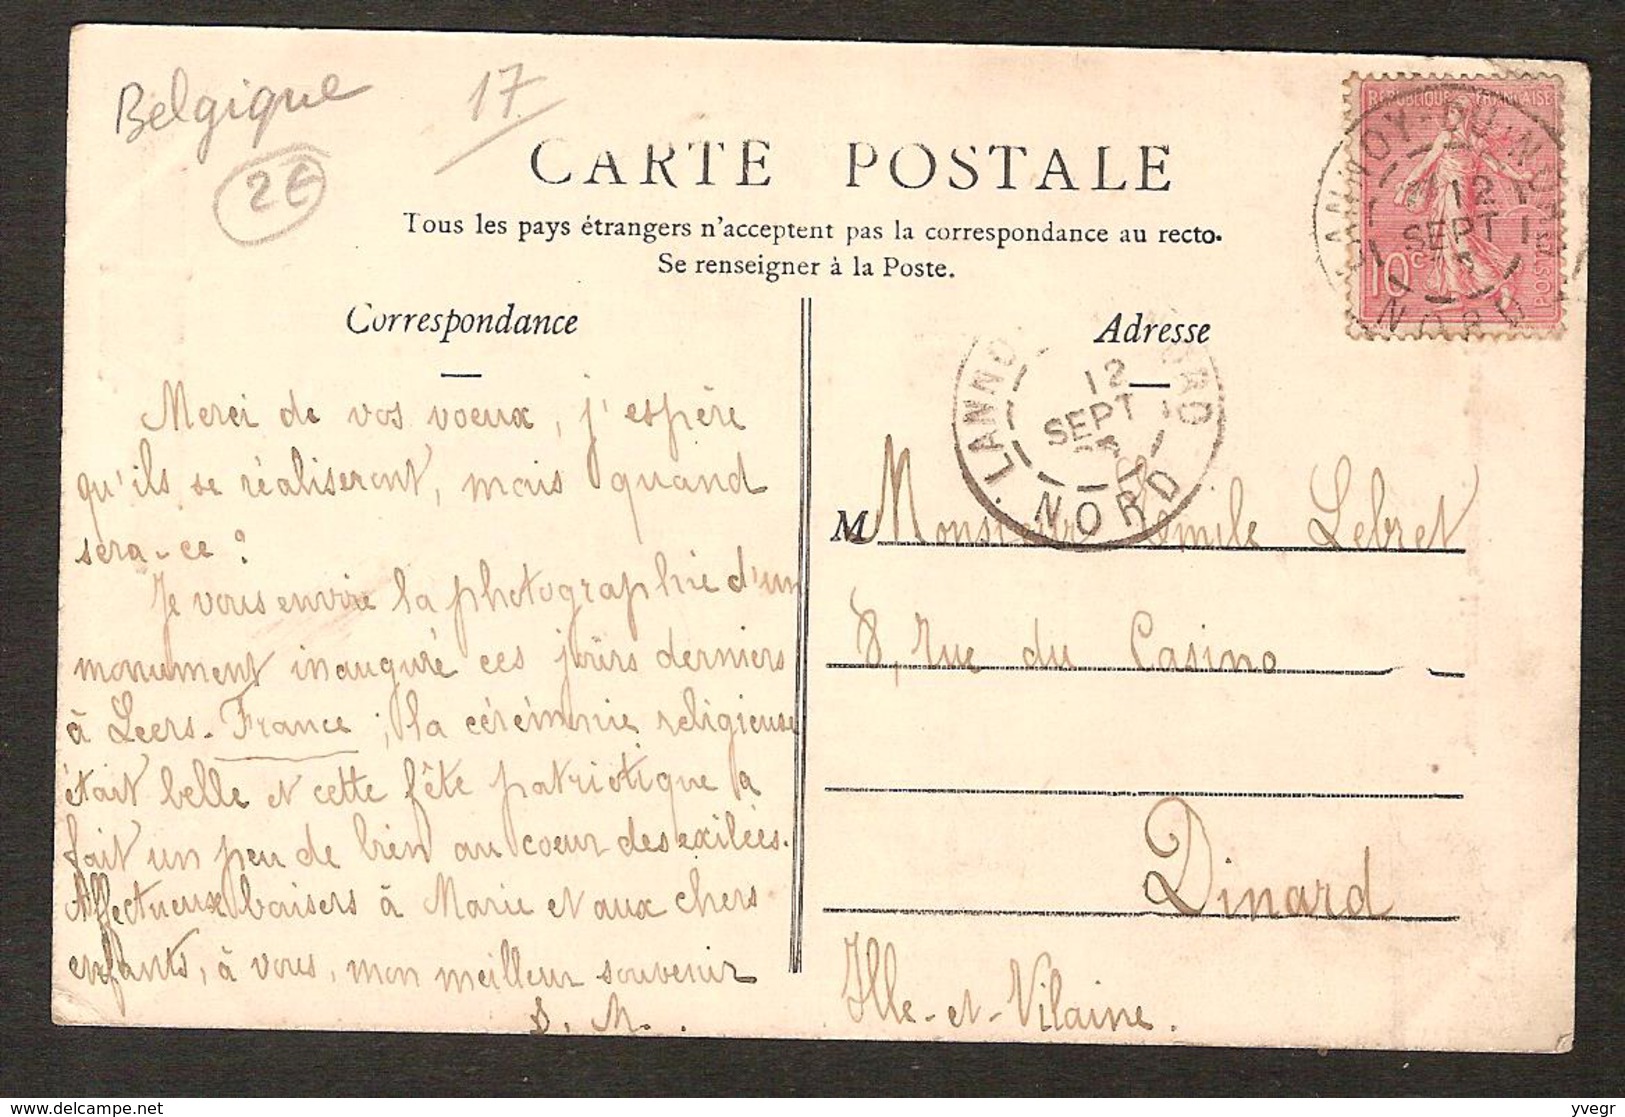 Belgique
17
2€
CARTE POSTALE
Tous les pays étrangers n'acceptent pas la correspondance au recto.
Se renseigner à la Poste.
RÉPUBLIQUE FRANÇAISE
10c
POSTES
LANNOY-DU-NORD
12
SEPT
NORD
Correspondance
Merci de vos voeux, j'espère
qu'ils se réaliseront, mais quand
sera-ce ?
Je vous envoie la photographie d'un
monument inauguré ces jours derniers
à Leers-France ; la cérémonie religieuse
était belle et cette fête patriotique a
fait un peu de bien au coeur des exilées.
Affectueux baisers à Marie et aux chers
enfants, à vous, mon meilleur souvenir
S. M.
Adresse
LANNO RD
12
SEPT
NORD
M Monsieur Emile Lebret
8, rue du Casino
Dinard
Ille-et-Vilaine.
yvegr